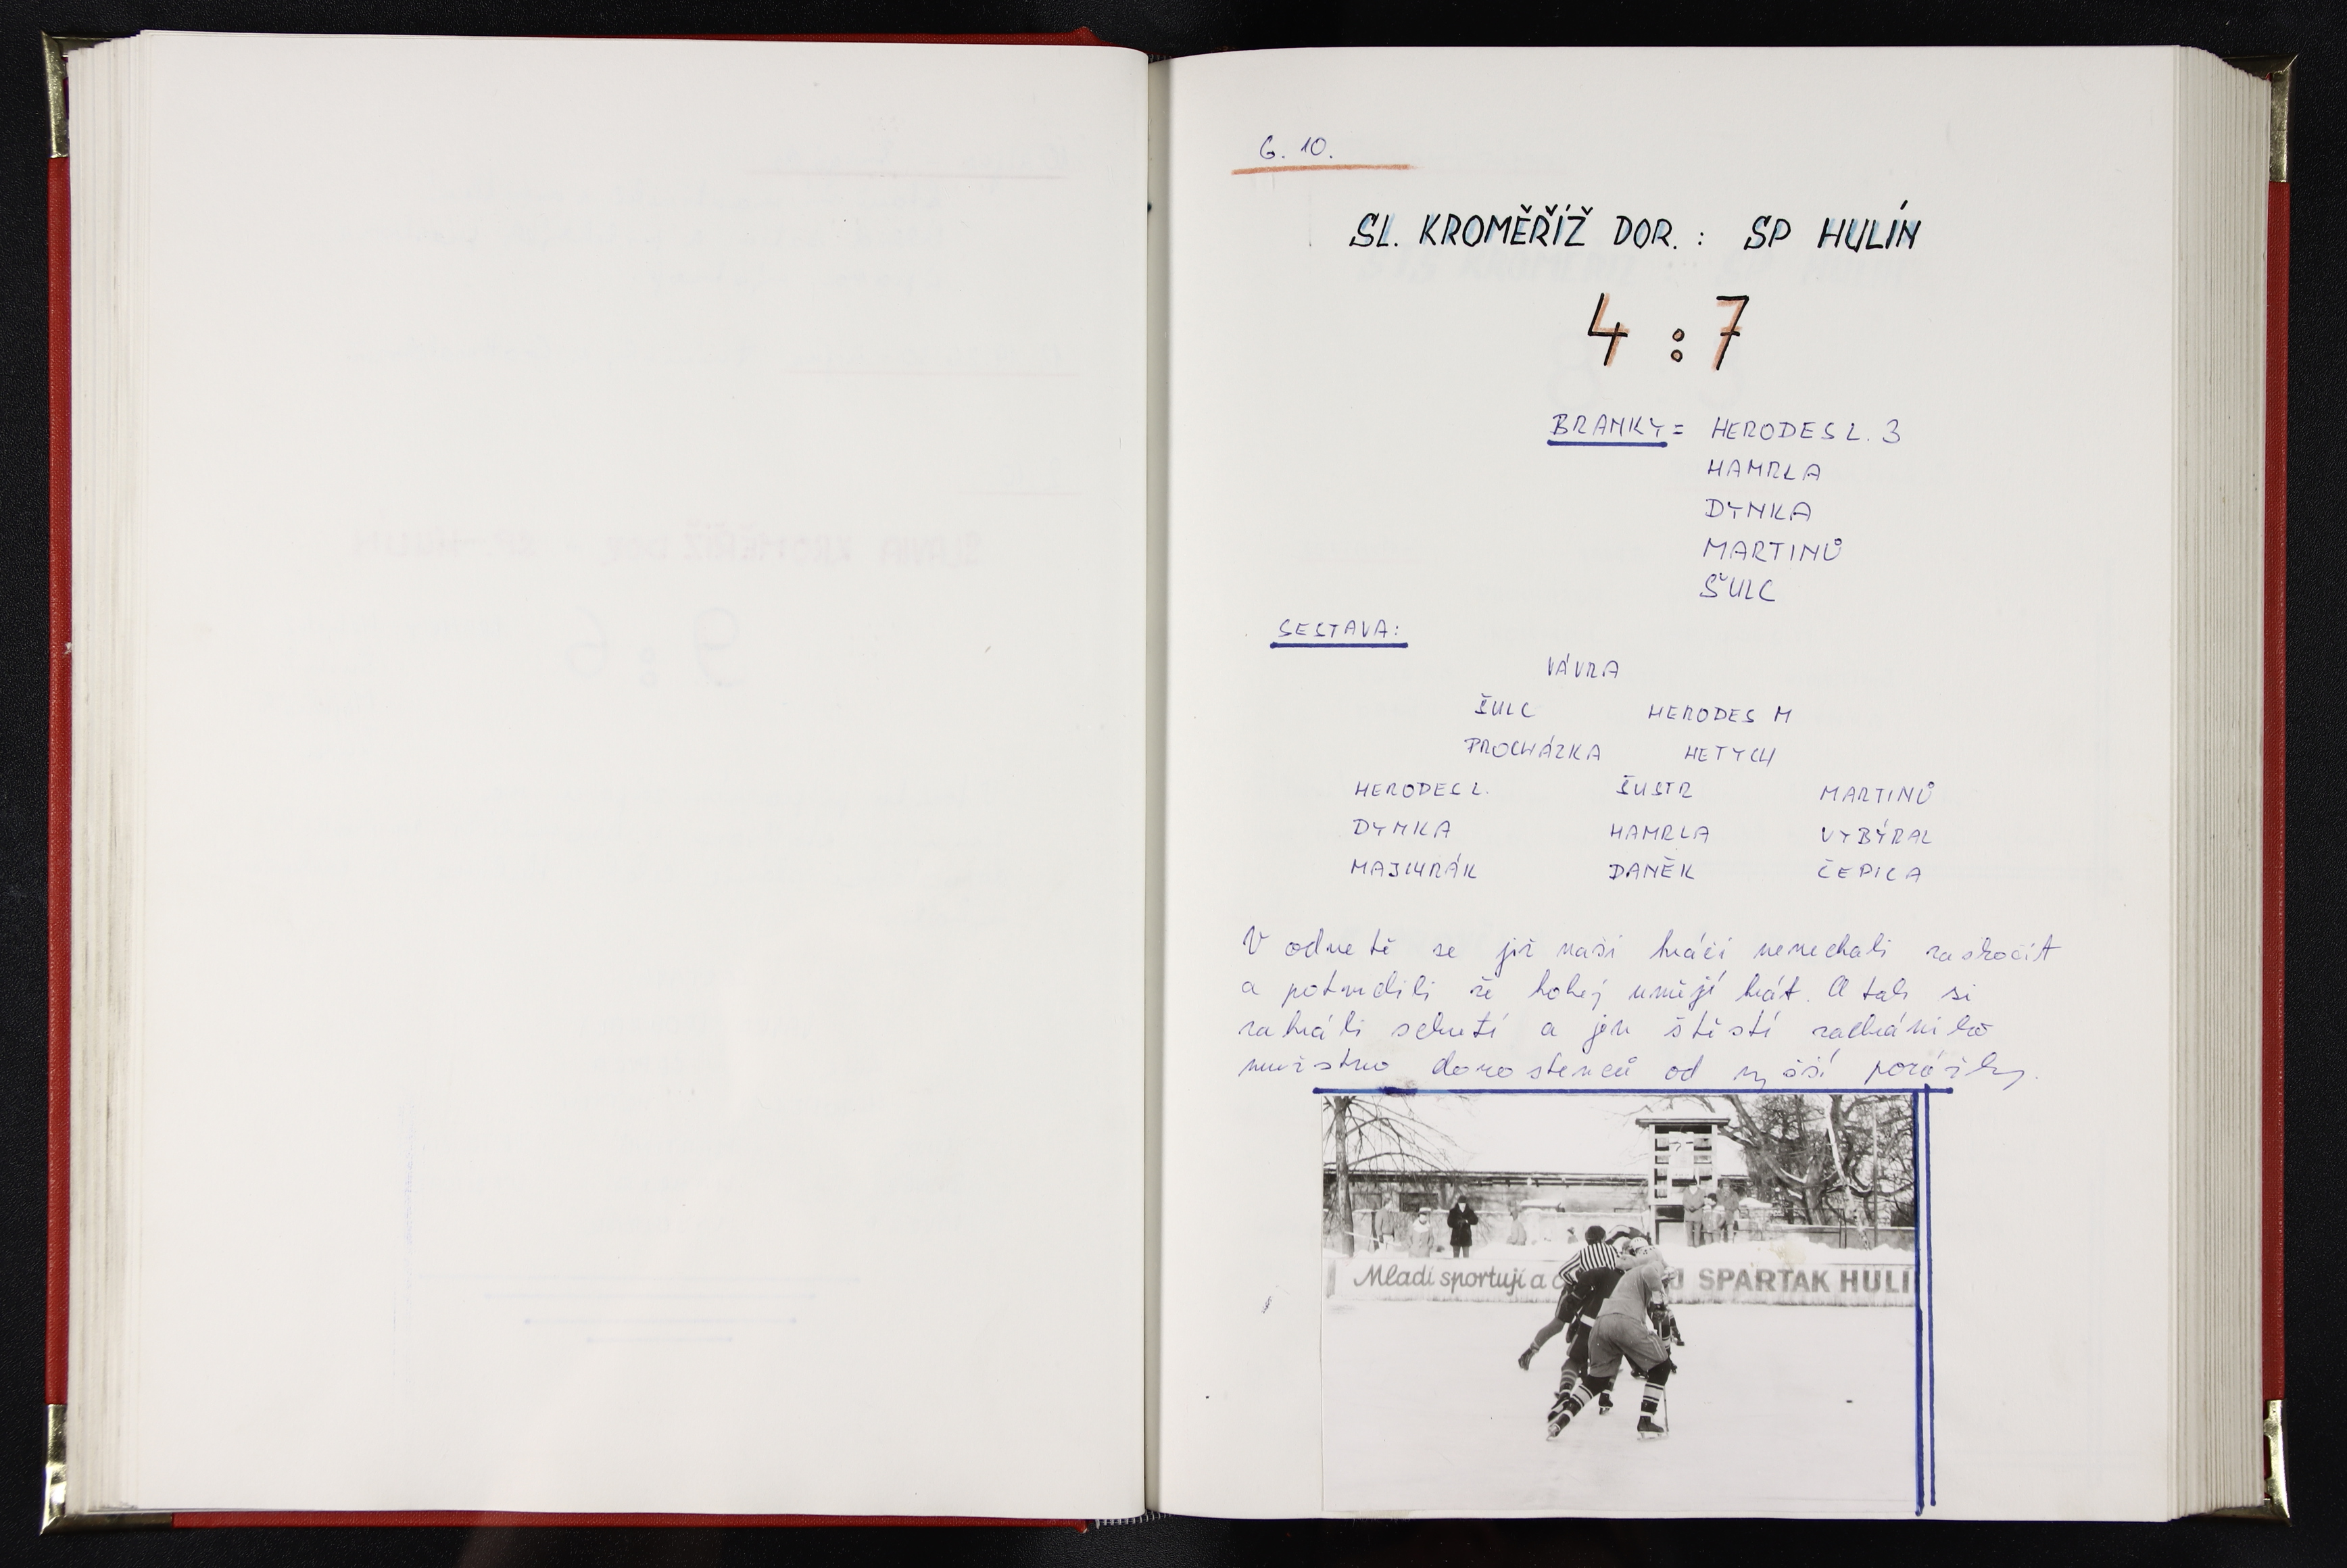 6. 10.
SL. KROMĚŘÍŽ DOR. : SP HULÍN
4 : 7
BRANKY = HERODES L. 3
HAMRLA
DYNKA
MARTINŮ
ŠULC
SESTAVA:
VÁVRA
ŠULC HERODES M
PROCHÁZKA HETYCH
HERODES L. ŠUSTR MARTINŮ
DYNKA HAMRLA VYBÝRAL
MAJCHRÁK DANĚK ČEPICA
V odvetě se již naši hráči nenechali zaskočit
a potvrdili že hokej umějí hrát. A tak si
zahráli a jen štěstí zachránilo
mužstvo dorostenců od vyšší porážky.
Mladí sportují a SPARTAK HULÍ